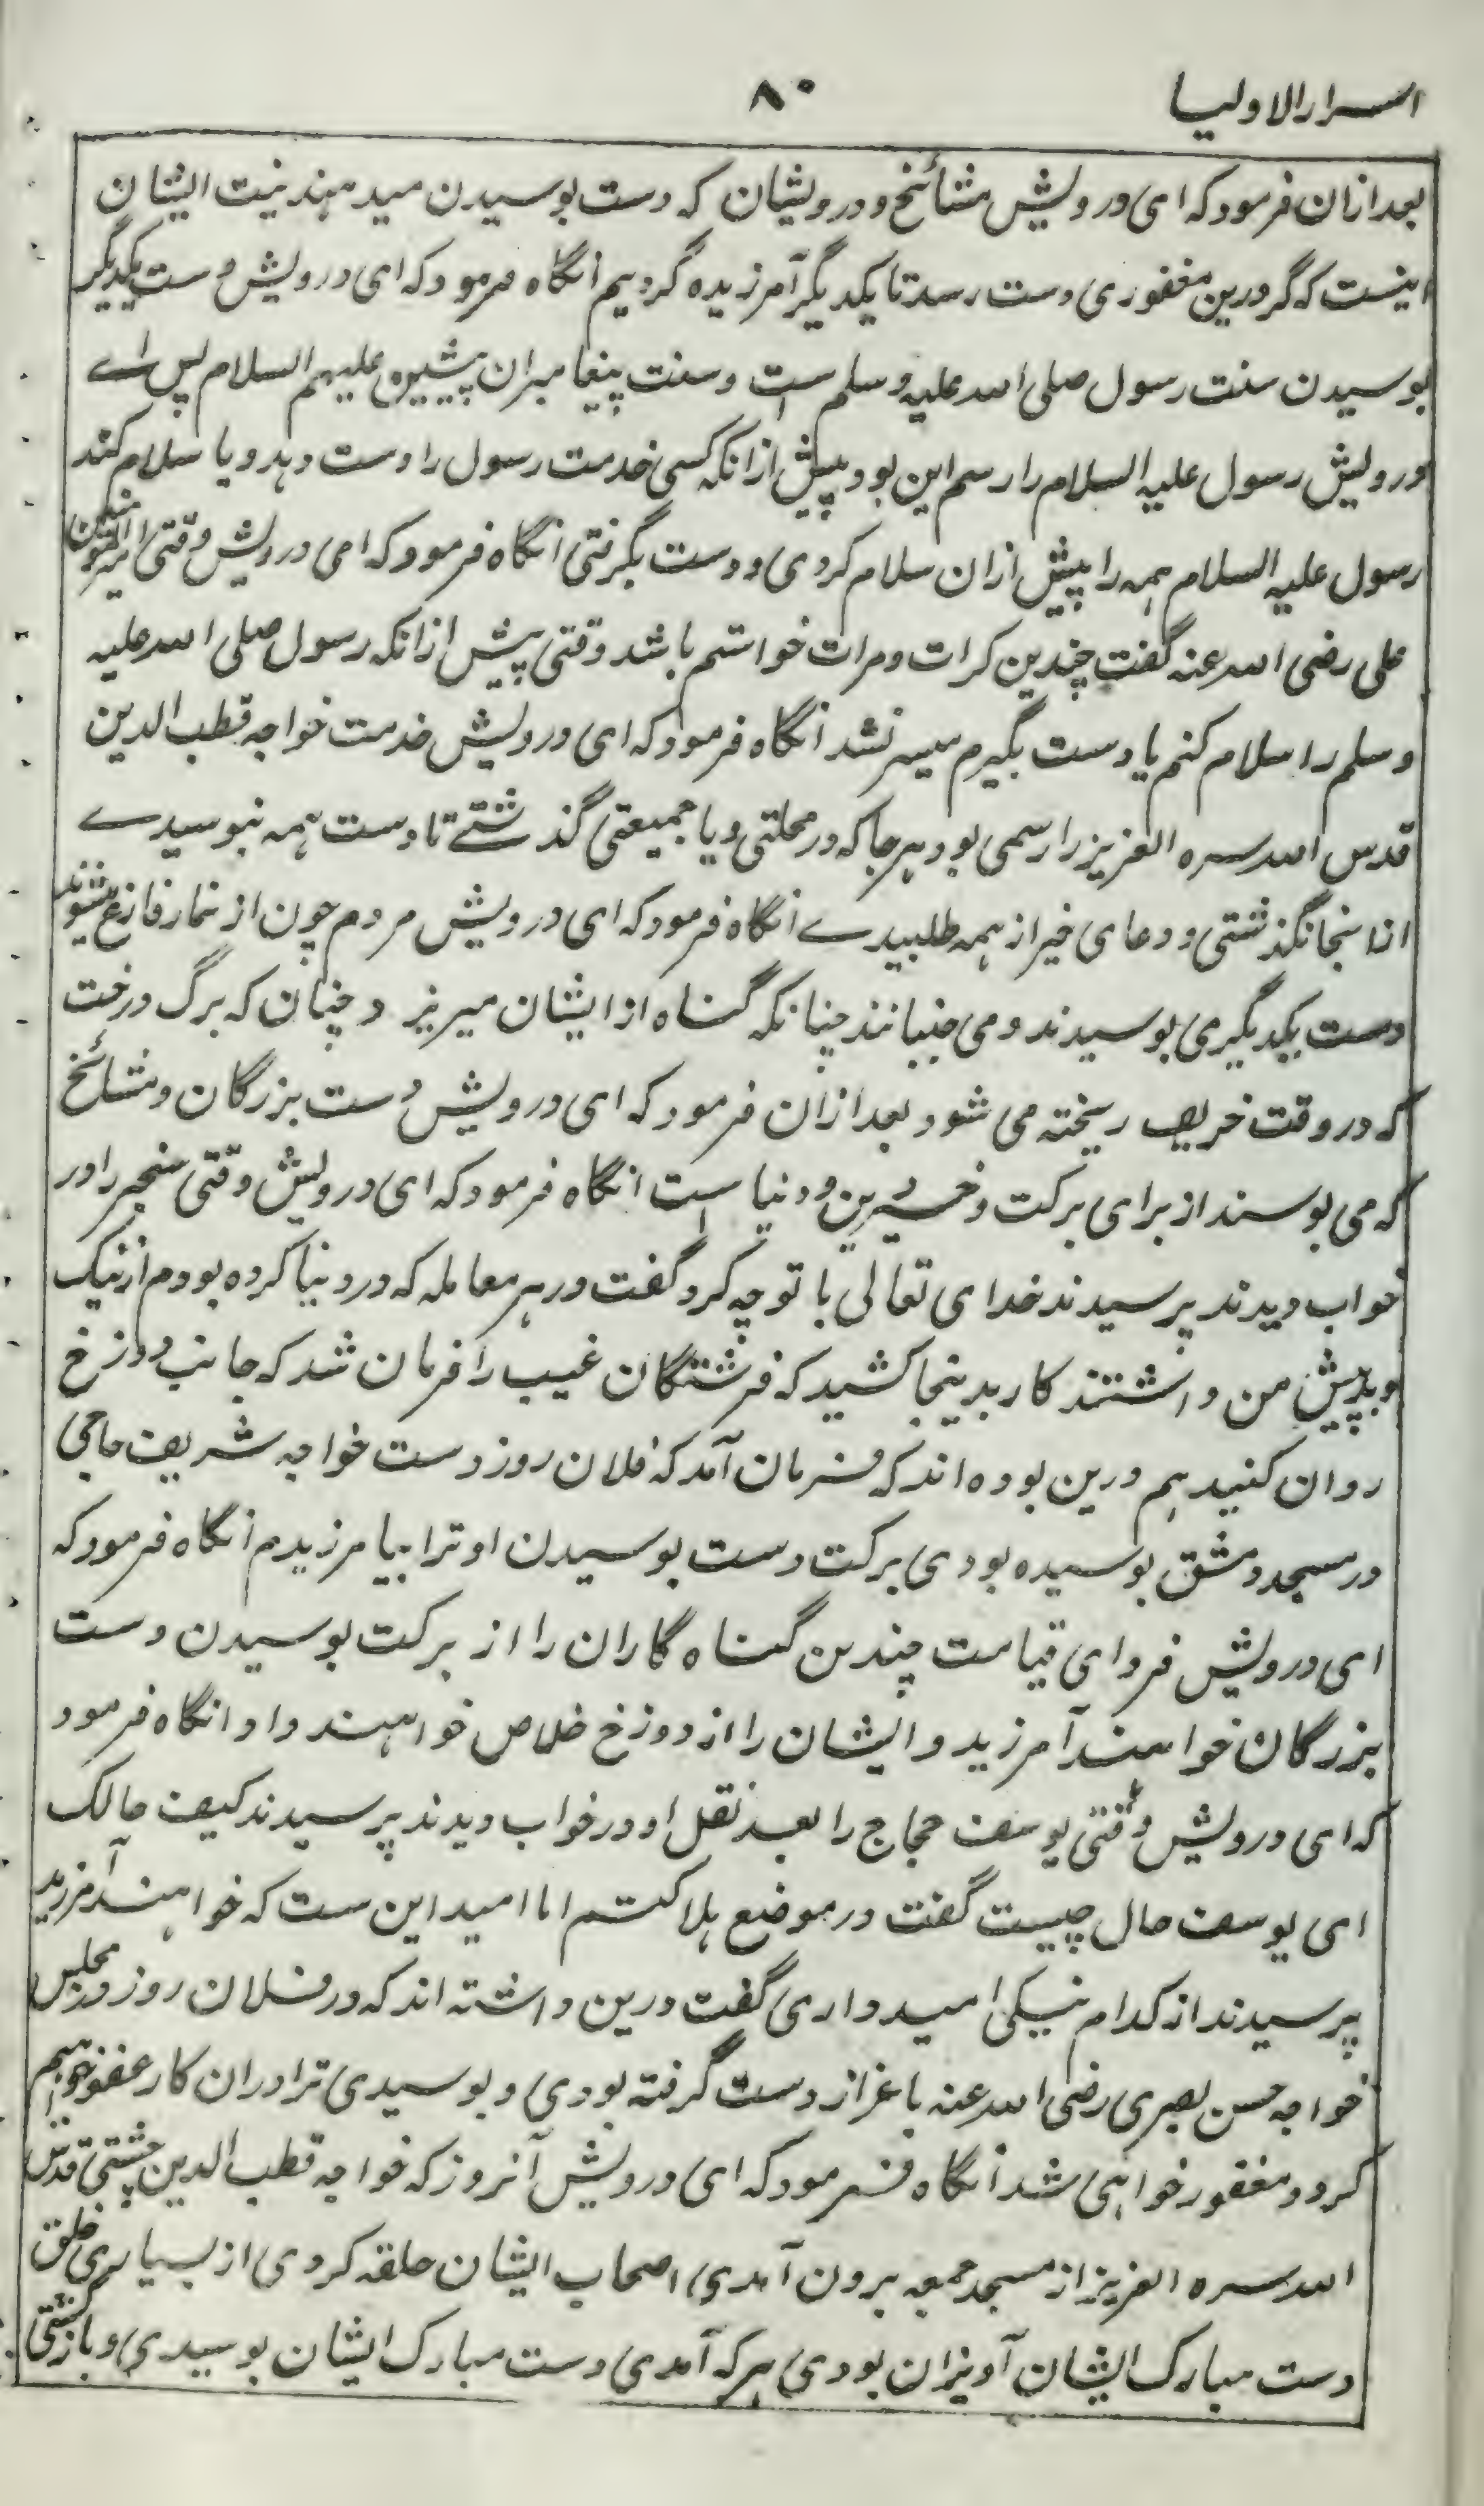 اسرار الاولیا
۸۰
بعد ازان فرمود که ای درویش مشائخ و درویشان که دست بوسیدن میدهند نیت ایشان
اینست که گر درین مغفوری دست رسد تا یکدیگر آمرزیده گردیم انگاه فرمود که ای درویش دست یکدیگر
بوسیدن سنت رسول صلی الله علیه و سلم ست و سنت پیغامبران پیشین علیهم السلام پس اے
درویش رسول علیه السلام را رسم این بود پیش ازانکه کسی خدمت رسول را دست دهد و یا سلام کند
رسول علیه السلام همه را پیش ازان سلام کردی و دست بگرفتی انگاه فرمود که ای درویش وقتی امیرالمومنین
علی رضی الله عنه گفت چندین کرات و مرات خواستم باشد وقتی پیش ازانکه رسول صلی الله علیه
و سلم را سلام کنم یا دست بگیرم میسر نشد انگاه فرمود که ای درویش خدمت خواجه قطب الدین
قدس الله سره العزیز را رسمی بود هر جا که در محلتی و یا جمیعتی گذشتے تا دست همه نبوسیدے
ازانجا نگذشتی و دعای خیر از همه طلبیدے انگاه فرمود که ای درویش مردم چون از نماز فارغ میشوند
دست یکدیگری بوسیدند و می جنبانند چنانکه گناه از ایشان میریزد چنان که برگ درخت
که در وقت خریف ریخته می شود بعد ازان فرمود که ای درویش دست بزرگان و مشائخ
که می بوسند از برای برکت و خیر دین و دنیا ست انگاه فرمود که ای درویش وقتی سنجر را در
خواب دیدند پرسیدند خدای تعالی با تو چه کرد گفت در هر معامله که در دنیا کرده بودم از نیک
و بد پیش من داشتند کار بدینجا کشید که فرشتگان غیب را فرمان شد که جانب دوزخ
روان کنید هم درین بوده اند که فرمان آمد که فلان روز دست خواجه شریف حاجی
در مسجد دمشق بوسیده بودی برکت دست بوسیدن او ترا بیامرزیدم انگاه فرمود که
ای درویش فردای قیامت چندین گناه گاران را از برکت بوسیدن دست
بزرگان خواهند آمرزید و ایشان را از دوزخ خلاص خواهند داد انگاه فرمود
که ای درویش وقتی یوسف حجاج را بعد نقل او در خواب دیدند پرسیدند کیف حالک
ای یوسف حال چیست گفت در موضع هلاکتم اما امید این ست که خواهند آمرزید
پرسیدند از کدام نیکی امیدواری گفت درین داشته اند که در فلان روز در مجلس
خواجه حسن بصری رضی الله عنه باعزاز دست گرفته بودی و بوسیدی ترا دران کار عفو خواهیم
کرد و مغفور خواهی شد انگاه فرمود که ای درویش آنروز که خواجه قطب الدین چشتی قدس
الله سره العزیز از مسجد جمعه برون آمدی اصحاب ایشان حلقه کردی از بسیاری خلق
دست مبارک ایشان آویزان بودی هر که آمدی دست مبارک ایشان بوسیدی و بازگشتی